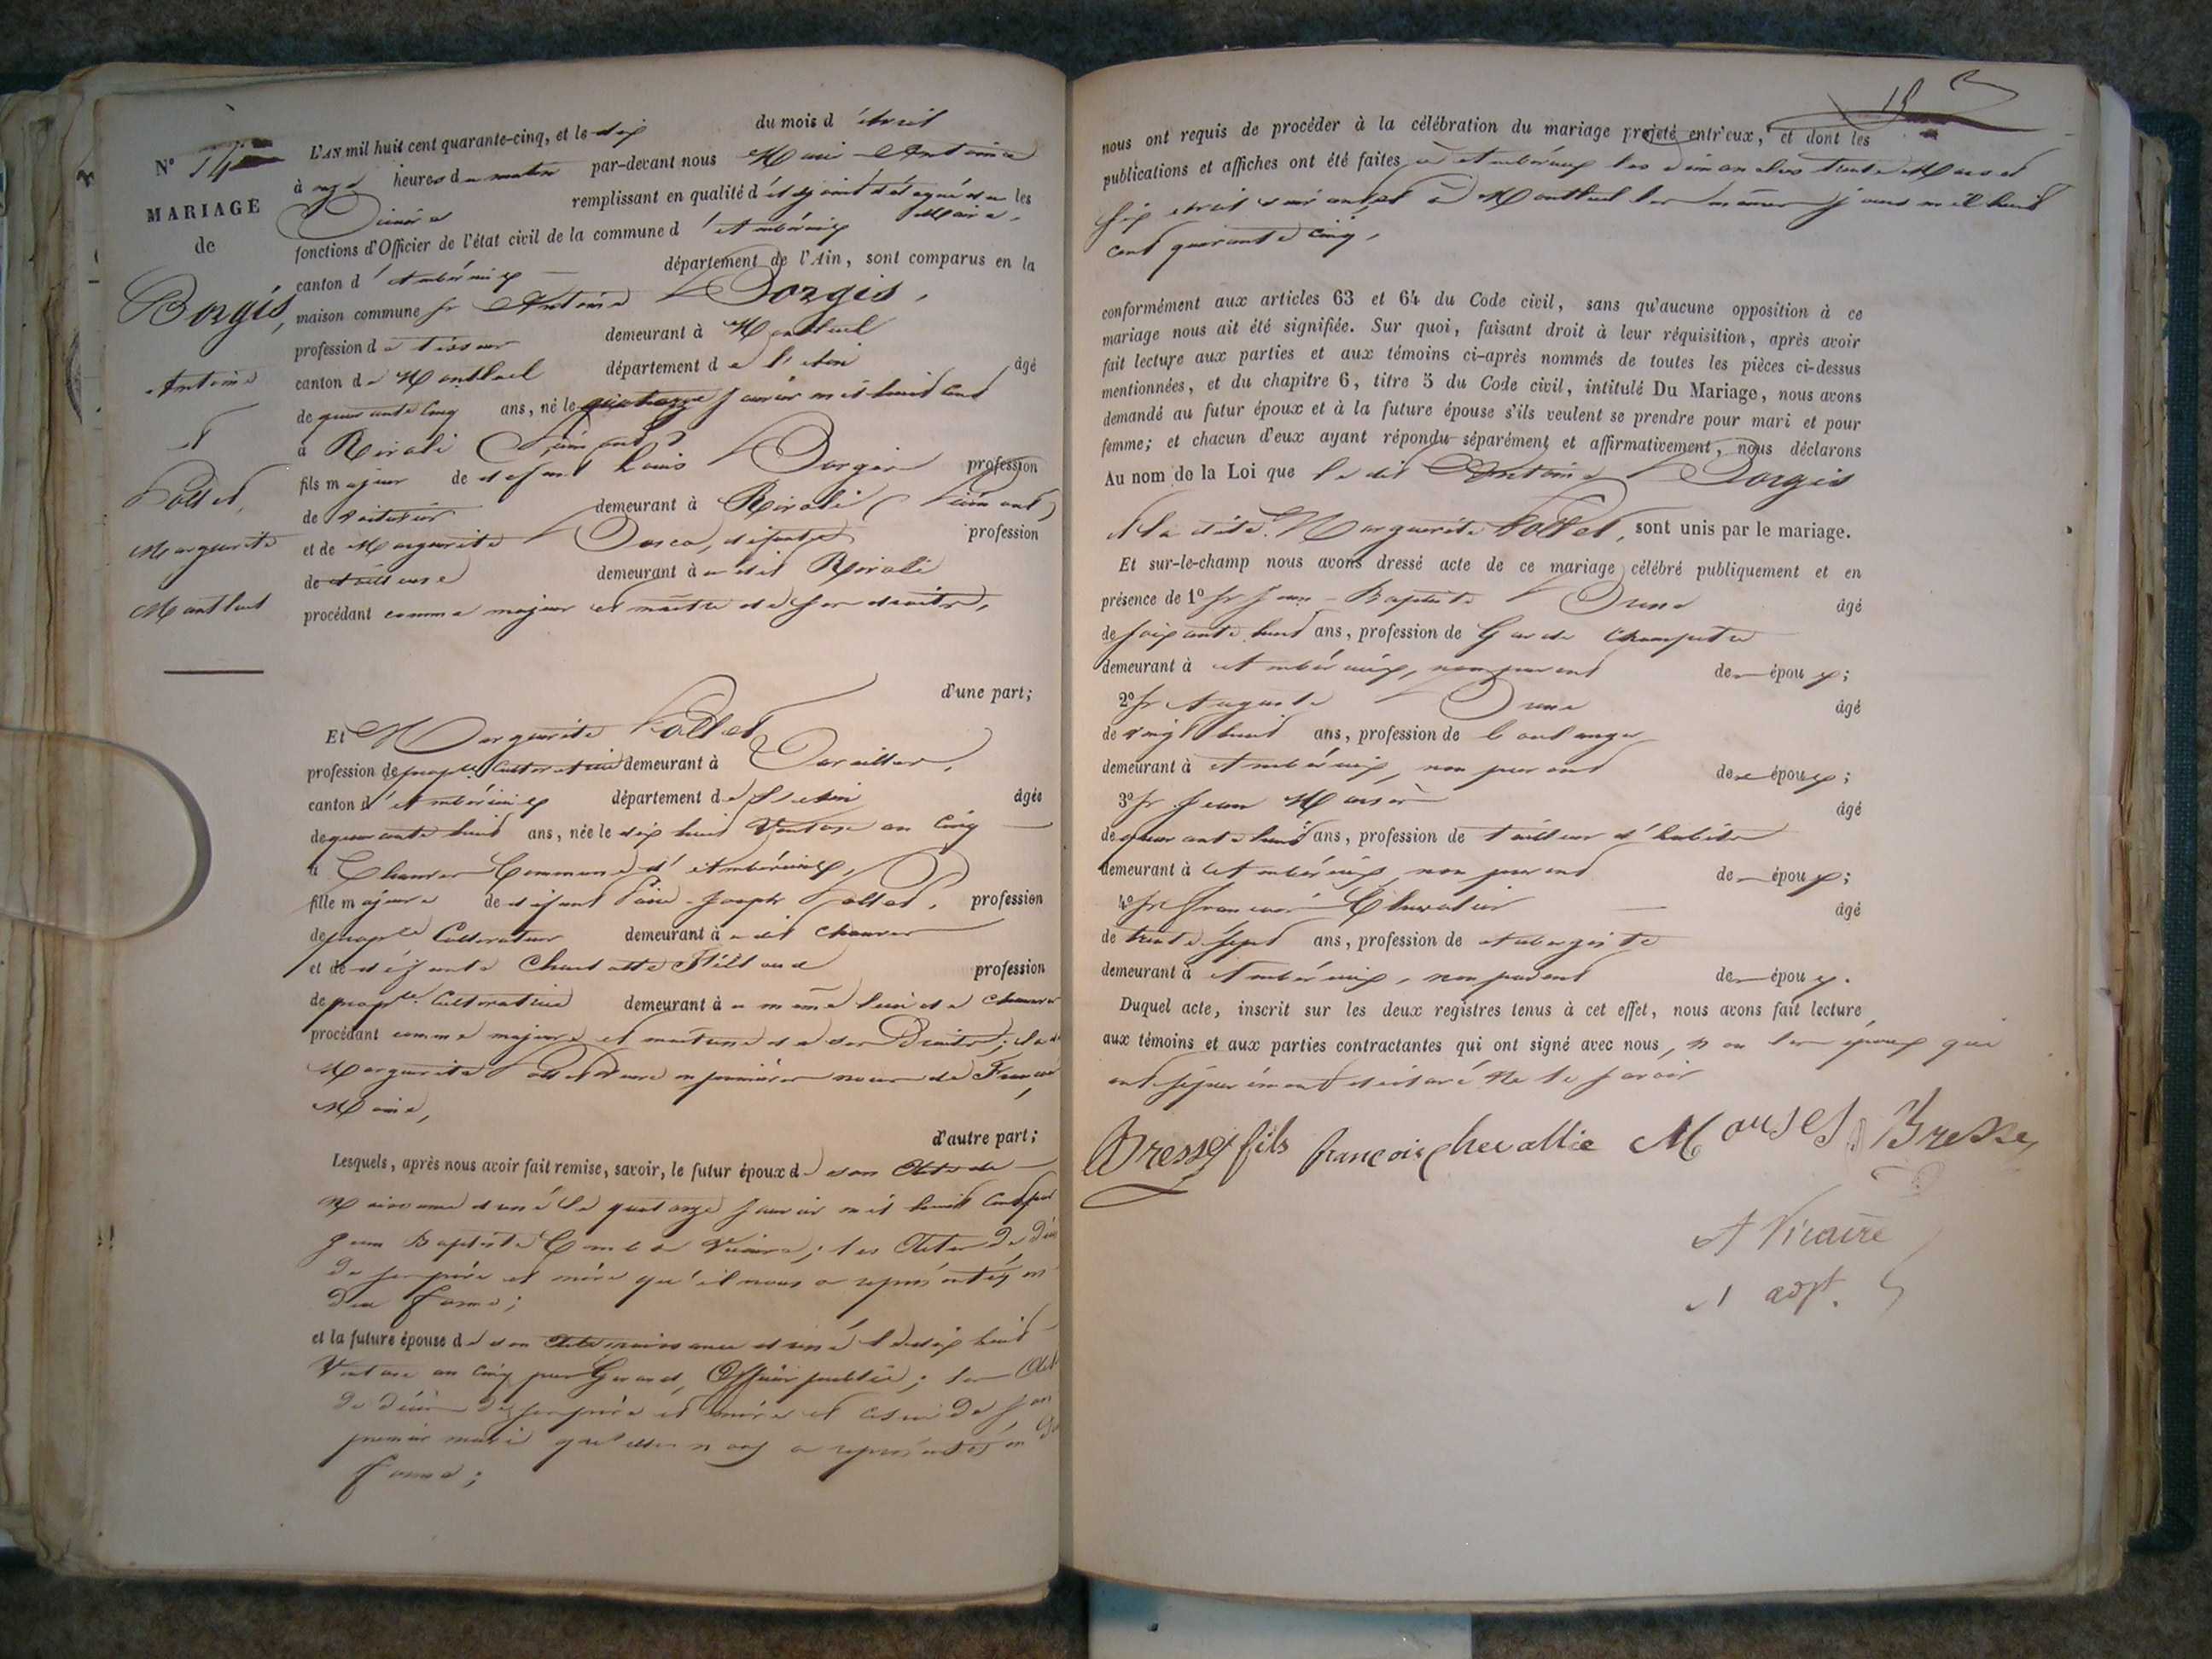 N° 14
MARIAGE
de
Borgis,
Antoine
et
Pollet,
Marguerite
Montluel
L'AN mil huit cent quarante-cinq, et le dix du mois d'Avril
à onze heures du matin par-devant nous Marie Antoine
remplissant en qualité d'adjoint délégué du Maire les
fonctions d'Officier de l'état civil de la commune d'Ambérieux
canton d'Ambérieux département de l'Ain, sont comparus en la
maison commune Sr Antoine Borgis,
profession de tisseur demeurant à Montluel
canton de Montluel département de l'Ain âgé
de quarante cinq ans, né le quatorze Janvier mil huit cent
à Rivoli (Piémont)
fils majeur de defunt Louis Borgis profession
de demeurant à Rivoli (Piémont)
et de Marguerite profession
de demeurant à udit Rivoli
procédant comme majeur et maître de ses droits,
d'une part;
Et Marguerite Pollet
profession de prople Cultivatrice demeurant à
canton d'Ambérieux département de l'Ain âgée
de quarante huit ans, née le dix huit Ventose an Cinq
à Commune d'Ambérieux,
fille majeure de defunt Joseph Pollet, profession
de prople Cultivateur demeurant à udit
et de défunte Charlotte profession
de prople Cultivatrice demeurant à u même lieu de
procédant comme majeure et maitresse de ses Droits; la de
Marguerite Pollet Veuve en premières noces de François
d'autre part;
Lesquels, après nous avoir fait remise, savoir, le futur époux de son Acte de
Naissance du quatorze Janvier mil huit Cent par
Jean Baptiste Vicaire; les Actes de Décès
de ses père et mère qu'il nous a représentés en
due forme;
et la future épouse de son Acte naissance le dix huit
Ventose an Cinq par Officier public; les Actes
de décès de ses père et mère et celui de son
premier mari qu'elle nous a représentés en
forme;
15
nous ont requis de procéder à la célébration du mariage projeté entr'eux, et dont les
publications et affiches ont été faites à Ambérieux les dimanches trente Mars et
Six Avril et à Montluel les mêmes jours mil huit
cent quarante cinq,
conformément aux articles 63 et 64 du Code civil, sans qu'aucune opposition à ce
mariage nous ait été signifiée. Sur quoi, faisant droit à leur réquisition, après avoir
fait lecture aux parties et aux témoins ci-après nommés de toutes les pièces ci-dessus
mentionnées, et du chapitre 6, titre 5 du Code civil, intitulé Du Mariage, nous avons
demandé au futur époux et à la future épouse s'ils veulent se prendre pour mari et pour
femme; et chacun d'eux ayant répondu séparément et affirmativement, nous déclarons
Au nom de la Loi que le dit Antoine Borgis
et la dite Marguerite Pollet, sont unis par le mariage.
Et sur-le-champ nous avons dressé acte de ce mariage célébré publiquement et en
présence de 1° Sr Jean-Baptiste âgé
de soixante huit ans, profession de Garde Champetre
demeurant à Ambérieux, non parent des époux;
2° Sr Auguste âgé
de vingt huit ans, profession de boulanger
demeurant à Ambérieux, non parent des époux;
3° Sr Jean âgé
de quarante huit ans, profession de tailleur d'habits
demeurant à Ambérieux, non parent des époux;
4° Sr François Chevalier âgé
de trente sept ans, profession de Aubergiste
demeurant à Ambérieux, non parent des époux.
Duquel acte, inscrit sur les deux registres tenus à cet effet, nous avons fait lecture
aux témoins et aux parties contractantes qui ont signé avec nous, non les époux qui
ont séparément déclaré ne le savoir
Bresse fils françois chevallie Mouses Bresse
A Vicaire
adjt.